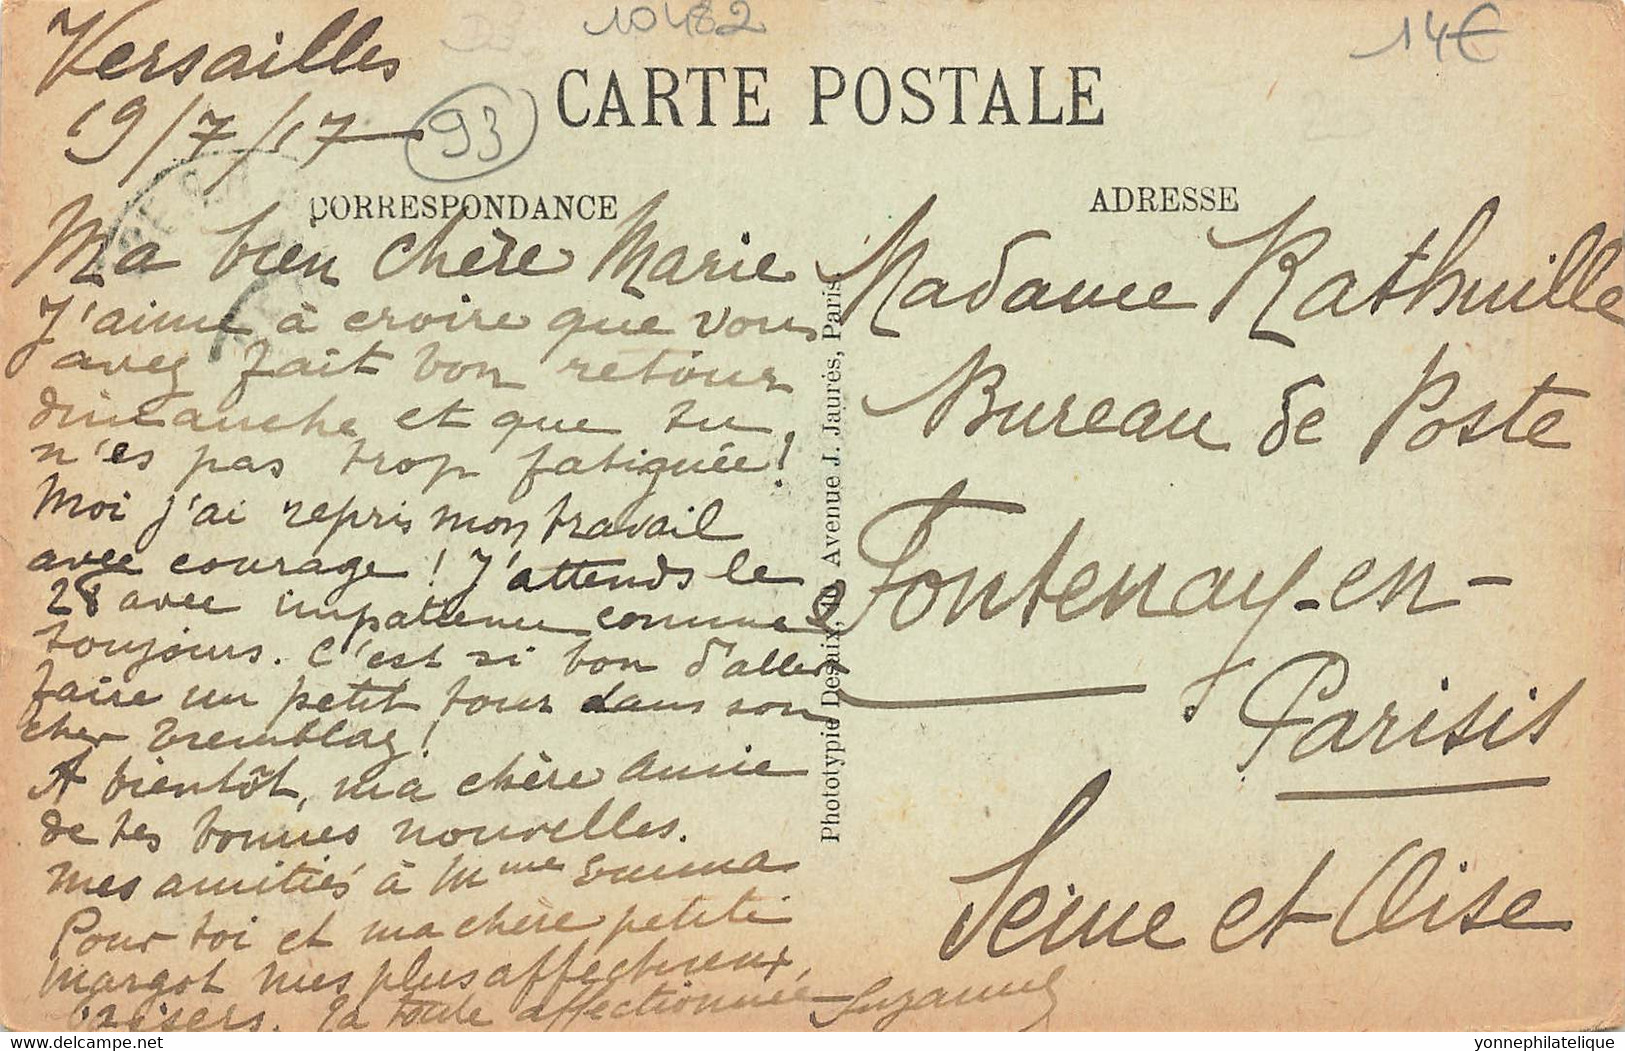 10482
14€
Versailles
19/7/17
93
CARTE POSTALE
CORRESPONDANCE
ADRESSE
Ma bien chère Marie
J'aime à croire que vous
avez fait bon retour
dimanche et que tu
n'es pas trop fatiguée !
Moi j'ai repris mon travail
avec courage ! J'attends le
28 avec impatience comme
toujours. C'est si bon d'aller
faire un petit tour dans son
cher Tremblay !
A bientôt, ma chère amie
de tes bonnes nouvelles.
Mes amitiés à Mme Emma
Pour toi et ma chère petite
Margot mes plus affectueux
baisers. Ta toute affectionnée Suzanne
Madame Rathuille
Bureau de Poste
Fontenay-en-
Parisis
Seine et Oise
Phototypie Desaix, Avenue J. Jaurès, Paris
yonnephilatelique.com